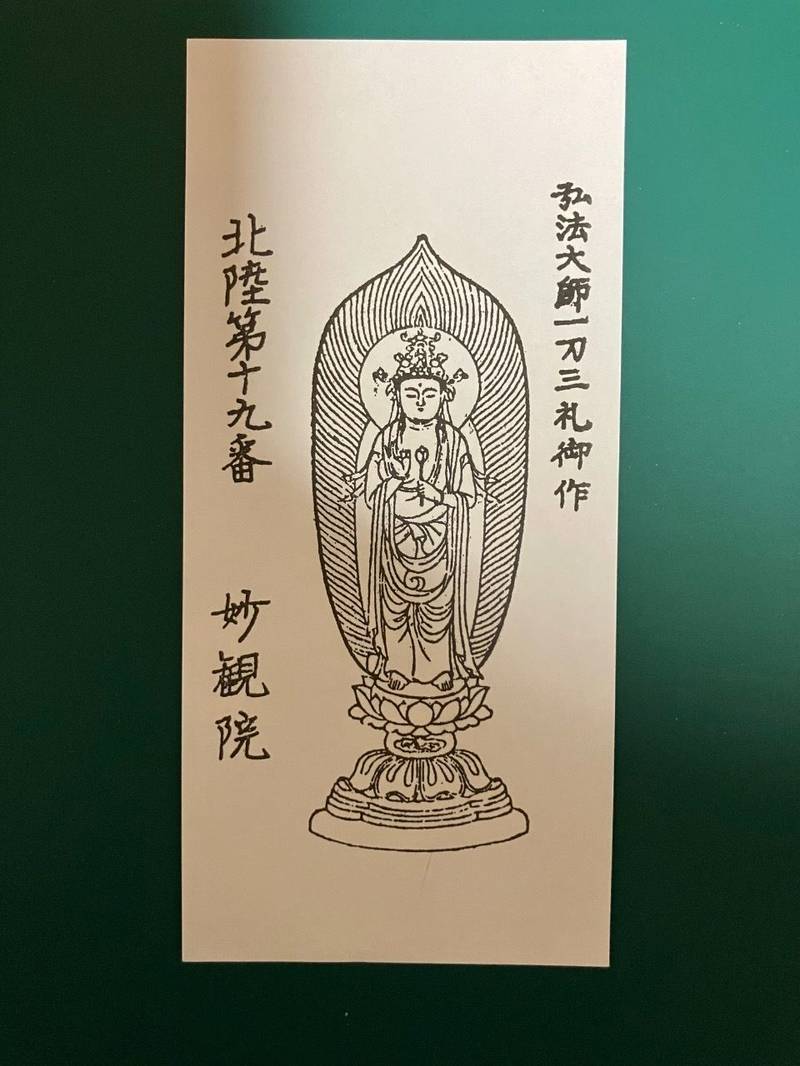 弘法大師一刀三礼御作
北陸第十九番
妙観院